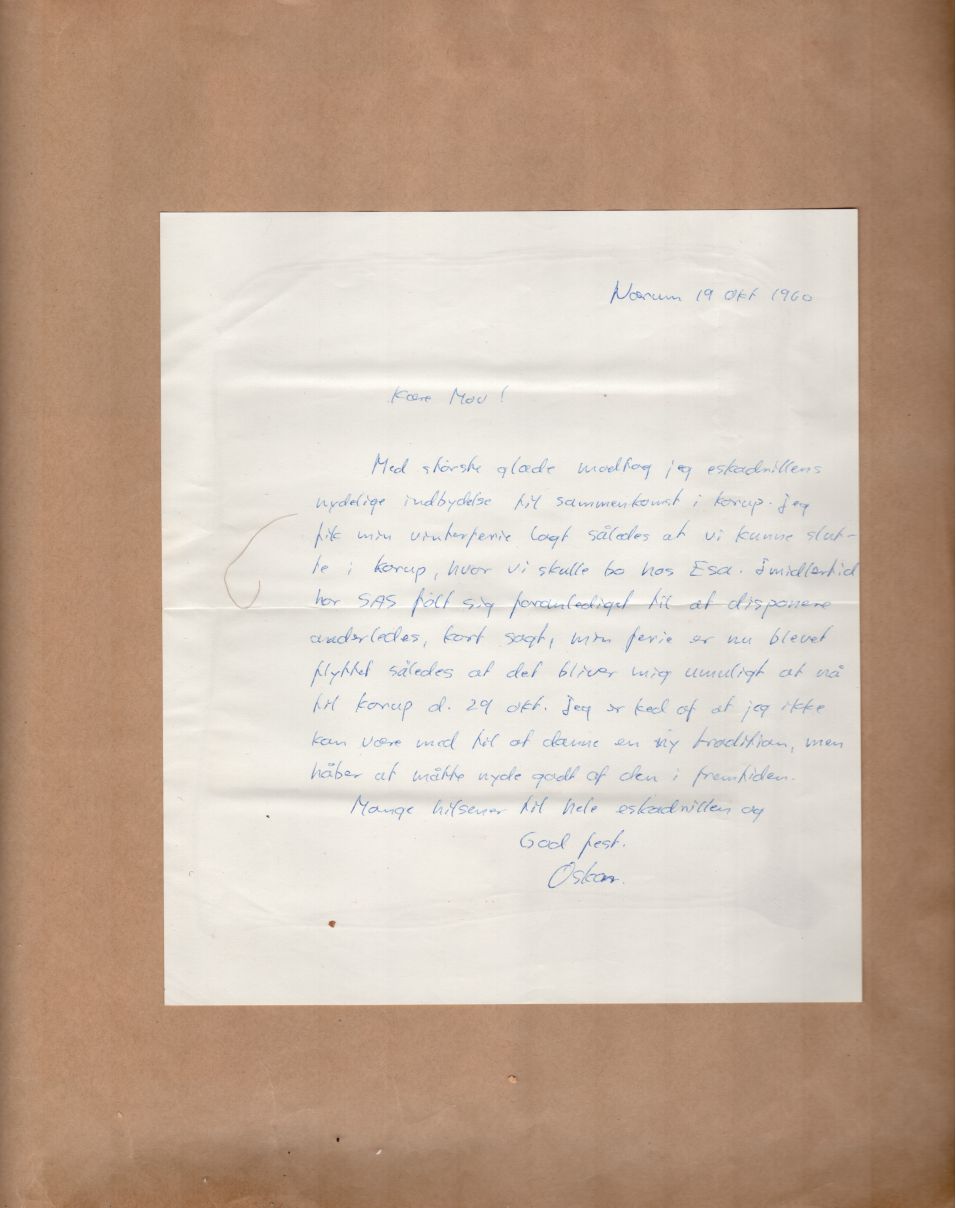 Nærum 19 okt 1960
Kære Mov!
Med største glæde modtog jeg eskadrillens
nydelige indbydelse til sammenkomst i Korup. Jeg
fik min vinterferie lagt således at vi kunne slut-
te i Korup, hvor vi skulle bo hos Esa. Imidlertid
har SAS følt sig foranlediget til at disponere
anderledes, kort sagt, min ferie er nu blevet
flyttet således at det bliver mig umuligt at nå
til Korup d. 29 okt. Jeg er ked af at jeg ikke
kan være med til at danne en ny tradition, men
håber at måtte nyde godt af den i fremtiden.
Mange hilsener til hele eskadrillen og
God fest.
Oskar.